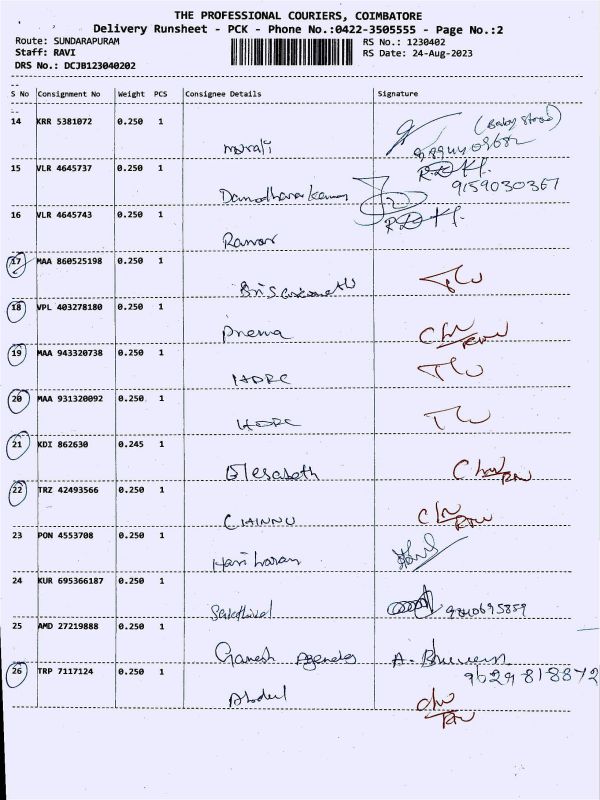 THE PROFESSIONAL COURIERS, COIMBATORE
Delivery Runsheet - PCK - Phone No.:0422-3505555 - Page No.:2
Route: SUNDARAPURAM RS No.: 1230402
Staff: RAVI RS Date: 24-Aug-2023
DRS No.: DCJB123040202
S No Consignment No Weight PCS Consignee Details Signature
14 KRR 5381072 0.250 1
Murali
15 VLR 4645737 0.250 1
9159030367
16 VLR 4645743 0.250 1
17 MAA 860525198 0.250 1
18 VPL 403278180 0.250 1
Prema
19 MAA 943320738 0.250 1
HDFC
20 MAA 931320092 0.250 1
HDFC
21 KDI 862630 0.245 1
22 TRZ 42493566 0.250 1
CHINNU
23 PON 4553708 0.250 1
Hariharan
24 KUR 695366187 0.250 1
Sakthivel
25 AMD 27219888 0.250 1
Ganesh Agencies A.
9629818872
26 TRP 7117124 0.250 1
Abdul